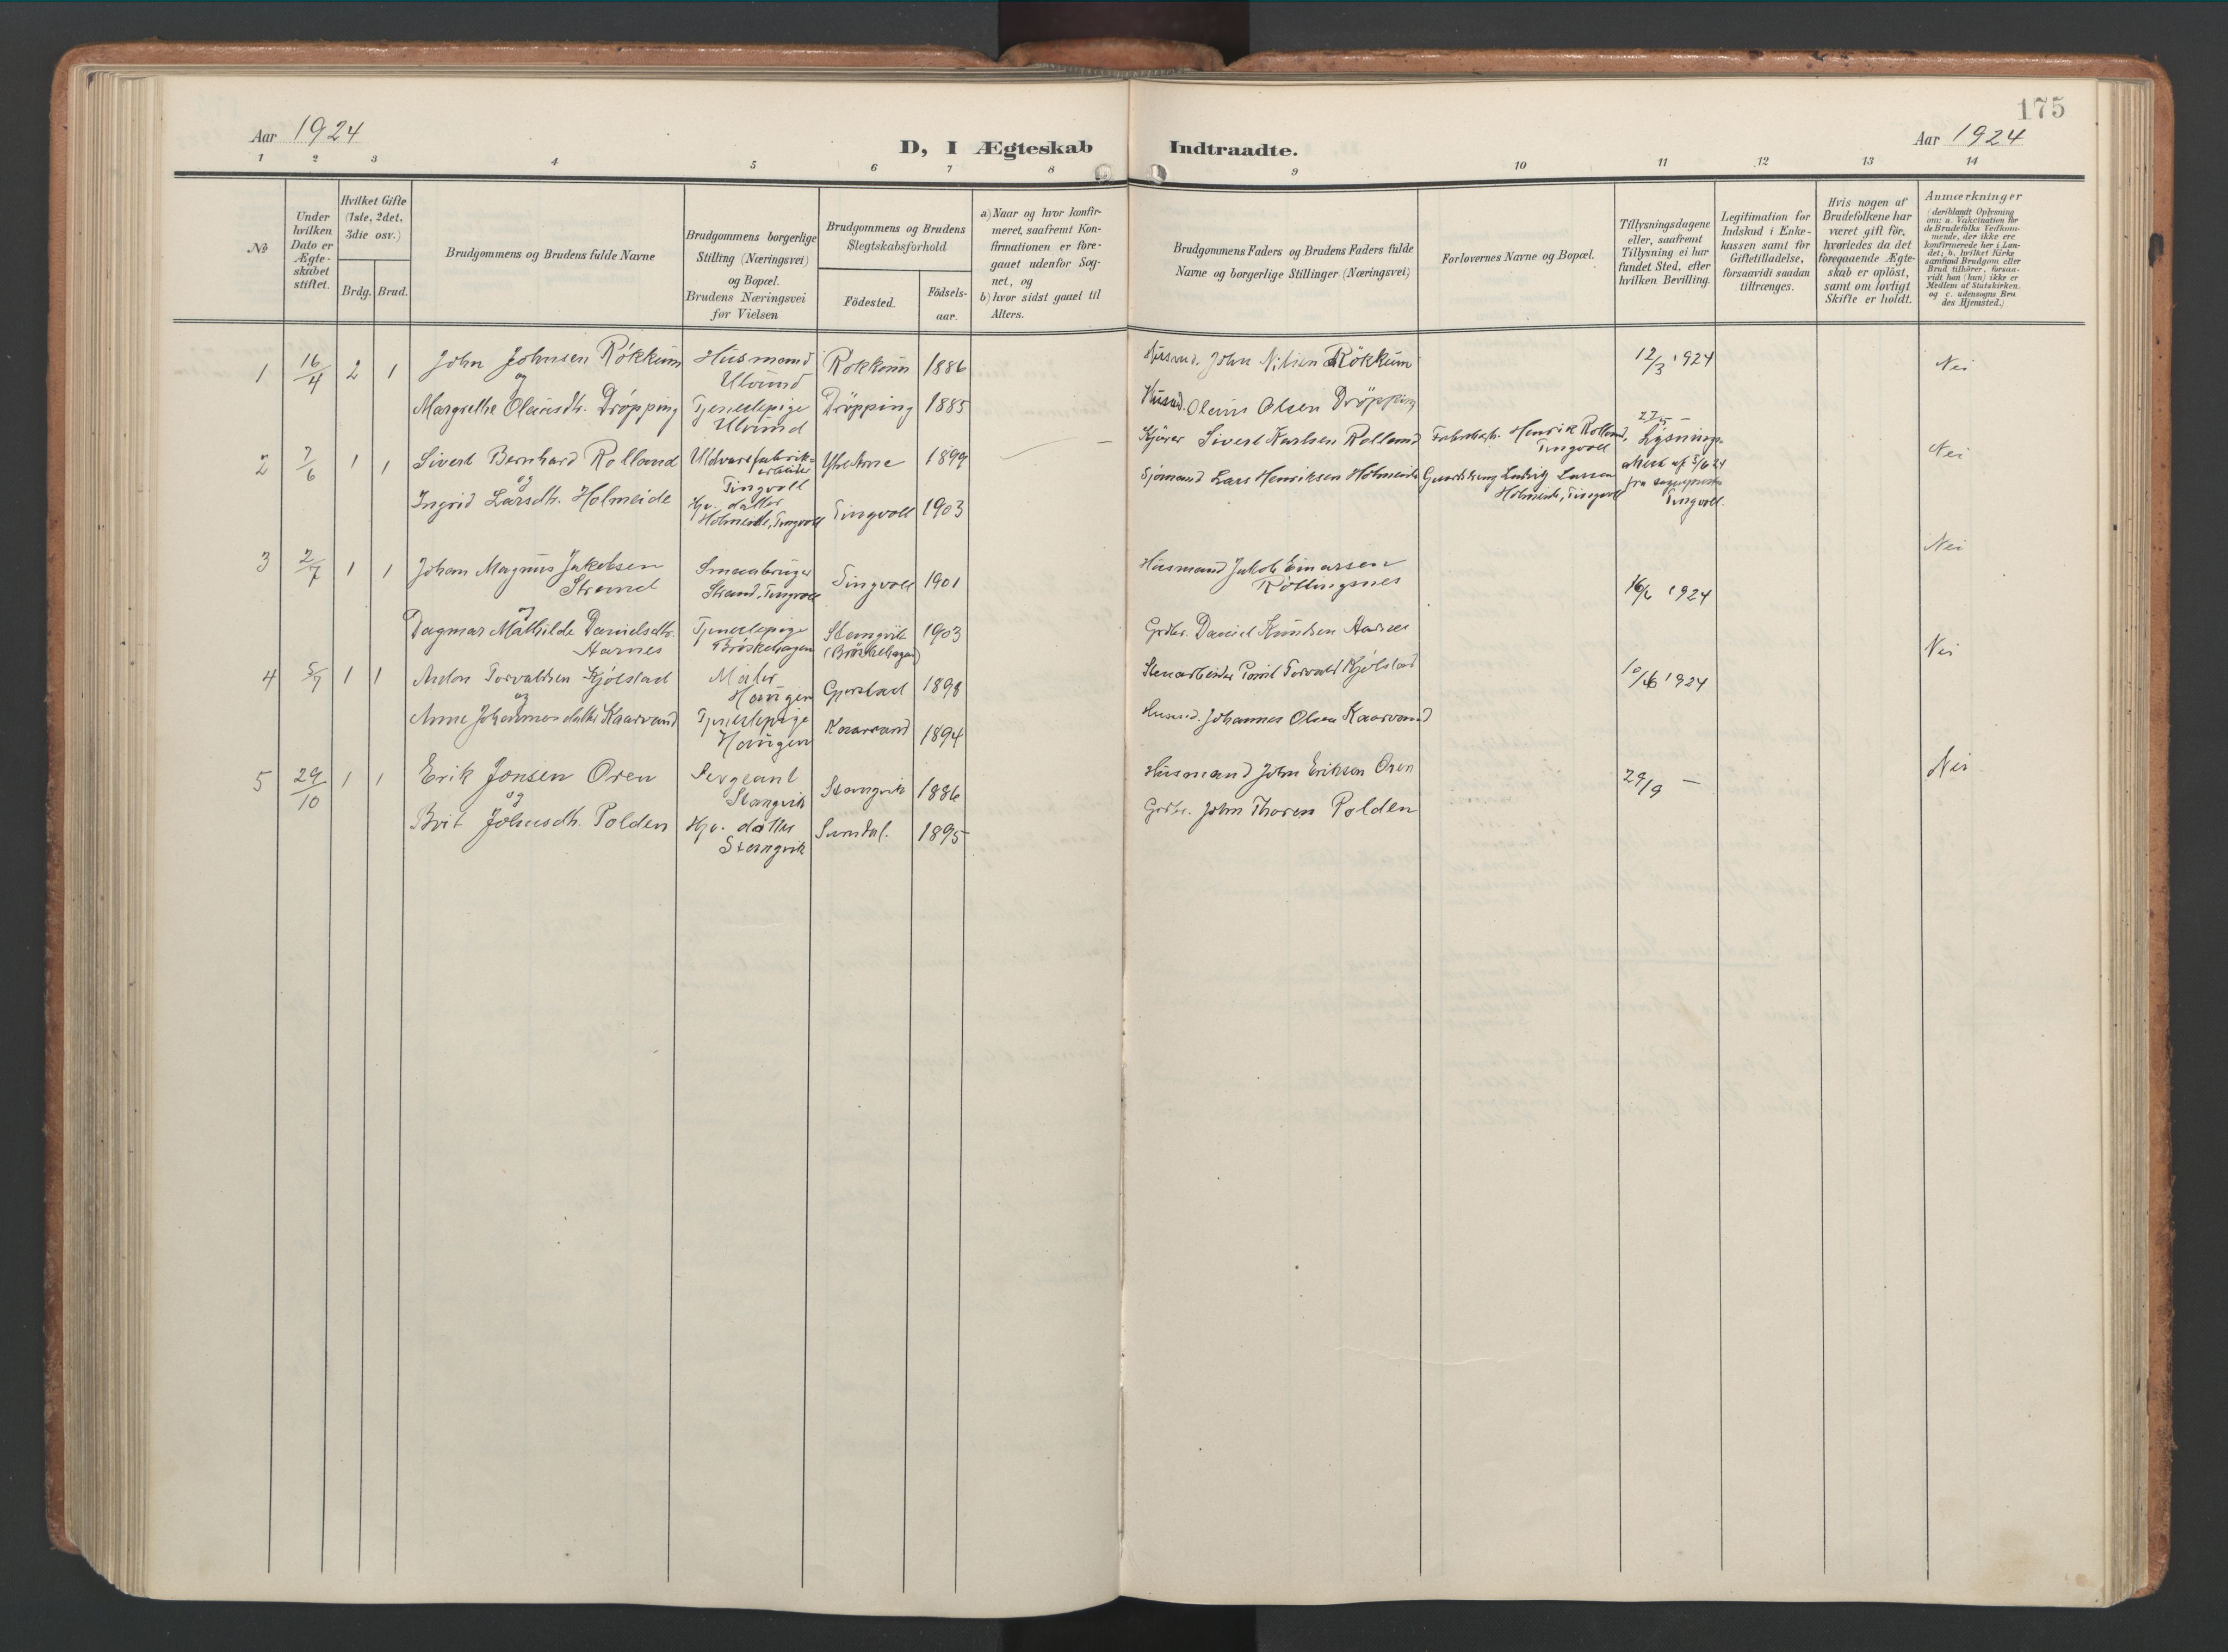 175
Aar 1924
D, I Ægteskab Indtraadte.
Aar 1924
1 2 3 4 5 6 7 8 9 10 11 12 13 14
No
Under
hvilken
Dato er
Ægte-
skabet
stiftet.
Hvilket Gifte
(1ste, 2det,
3die osv.)
Brdg. Brud.
Brudgommens og Brudens fulde Navne
Brudgommens borgerlige
Stilling (Næringsvei)
og Bopæl.
Brudens Næringsvei
før Vielsen
Brudgommens og Brudens
Slegtskabsforhold
Fødested.
Fødsels-
aar.
a) Naar og hvor konfir-
meret, saafremt Kon-
firmationen er fore-
gaaet udenfor Sog-
net, og
b) hvor sidst gaaet til
Alters.
Brudgommens Faders og Brudens Faders fulde
Navne og borgerlige Stillinger (Næringsvei)
Forlovernes Navne og Bopæl.
Tillysningsdagene
eller, saafremt
Tillysning ei har
fundet Sted, efter
hvilken Bevilling.
Legitimation for
Indskud i Enke-
kassen samt for
Giftetilladelse,
forsaavidt saadan
tiltrænges.
Hvis nogen af
Brudefolkene har
været gift før,
hvorledes da det
foregaaende Ægte-
skab er opløst,
samt om lovligt
Skifte er holdt.
Anmærkninger
(deriblandt Oplysning
om: a. Vakcination for
de Brudefolks Vedkom-
mende, der ikke ere
konfirmerede her i Lan-
det; b. hvilket Kirke
samfund Brudgom eller
Brud tilhører, forsaa-
vidt han (hun) ikke er
Medlem af Statskirken.
og c. udensogns Bru
des Hjemsted.)
1 16/4 2 1 John Johnsen Røkkum Husmand Røkkum 1886 Husmd. John Nilsen Røkkum 12/3 1924 Nei
og Ulvund
Margrethe Olausdtr. Drøpping Tjenestepige Drøpping 1885 Husmd. Olaus Olsen Drøpping
Ulvund
2 7/6 1 1 Sivert Bernhard Rolland Uldvarefabrik- 1899 Kjører Sivert Karlsen Rolland Henrik Rolland, Lysnings- Nei
arbeider Tingvoll
og Tingvoll
Ingrid Larsdtr. Holmeide Hjv. datter Tingvoll 1903 Sjømand Lars Henriksen Holmeide Ludvig Larsen attest af 5/6 24
Holmeide, Tingvoll Holmeide, Tingvoll fra
Tingvoll.
3 2/7 1 1 Johan Magnus Jakobsen Smaabruger Tingvoll 1901 Husmand Jakob Einarsen 16/6 1924 Nei
Strand Strand, Tingvoll Røttingsnes
og
Dagmar Mathilde Danielsdtr. Tjenestepige Stangvik 1903 Grdbr. Daniel Knudsen Aarnes
Aarnes Brøskehagen (Brøskehagen)
4 5/7 1 1 Anton Torvaldsen Kjølstad Maler 1898 Stenarbeider Torvald Kjølstad 10/6 1924 Nei
og Haugen
Anne Johannesdatter Kaarvand Tjenestepige Kaarvand 1894 Husmd. Johannes Olsen Kaarvand
Haugen
5 29/10 1 1 Erik Jonsen Øren Sergeant Stangvik 1886 Husmand John Eriksen Øren 29/9 — Nei
og Stangvik
Brit Johnsdtr. Polden Hjv. datter Sundal. 1895 Grdbr. John Thoresen Polden
Stangvik